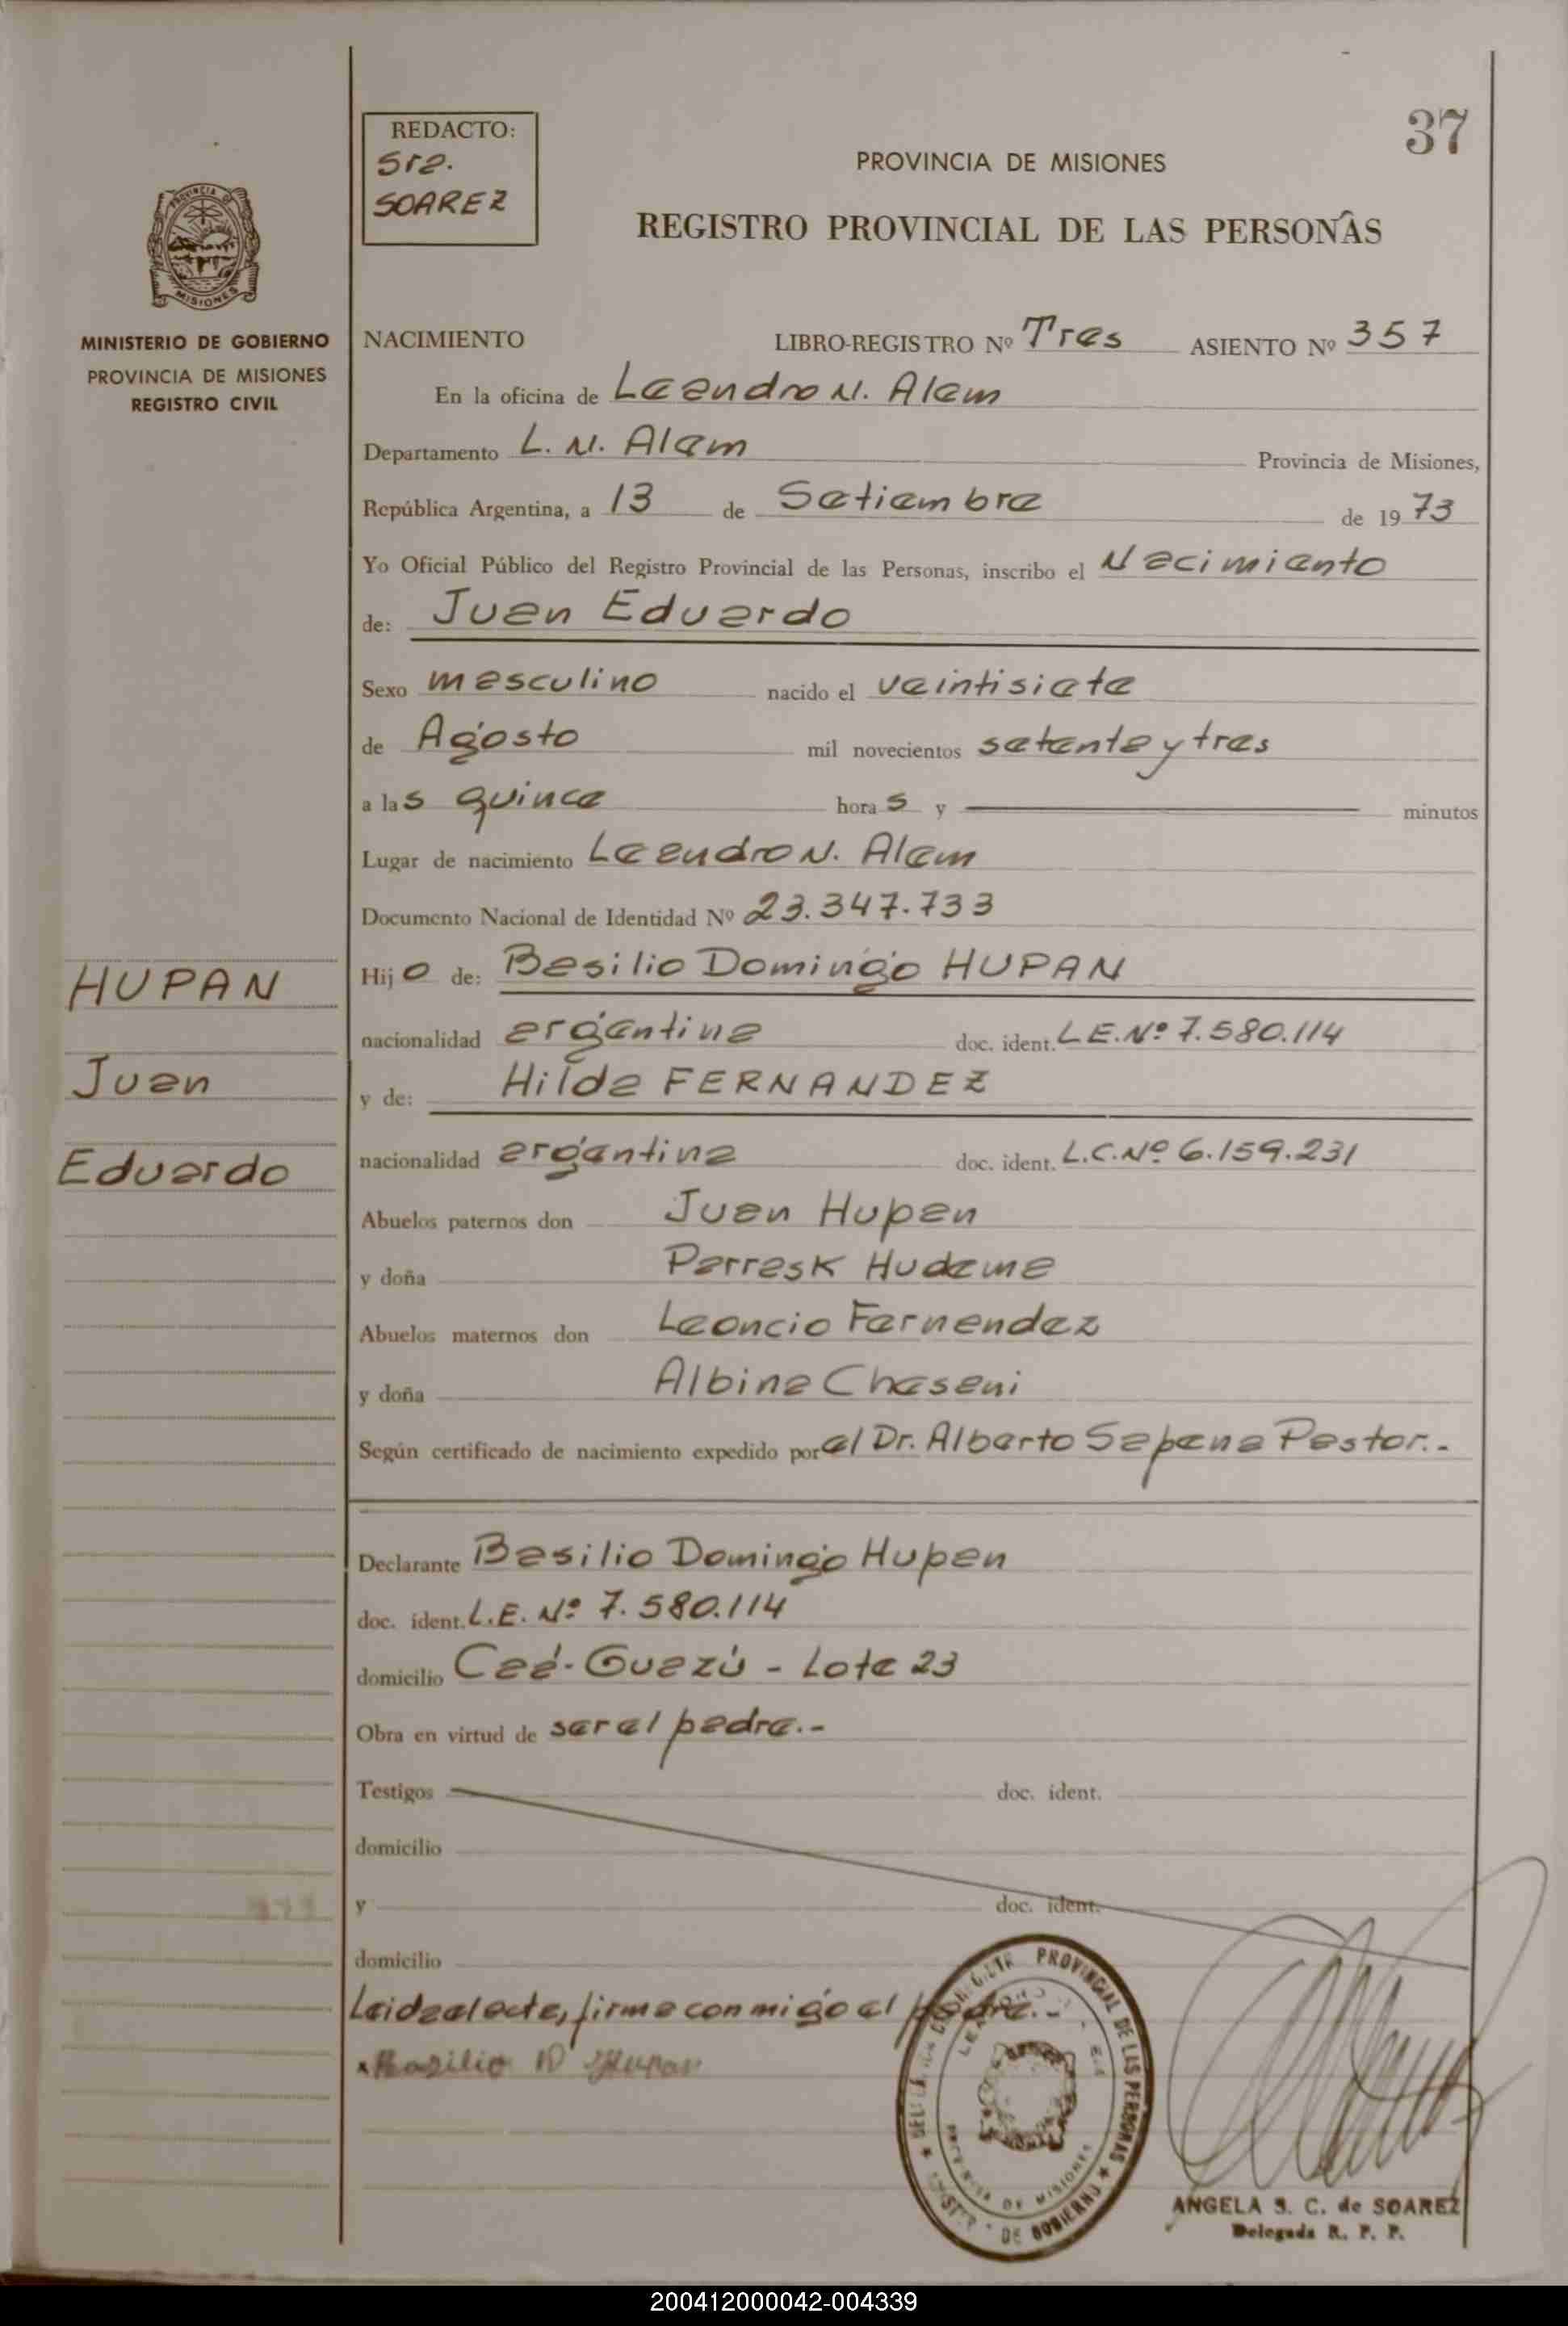 37
REDACTO:
Sra.
SOAREZ
PROVINCIA DE MISIONES
REGISTRO PROVINCIAL DE LAS PERSONAS
PROVINCIA DE
MISIONES
MINISTERIO DE GOBIERNO
PROVINCIA DE MISIONES
REGISTRO CIVIL
NACIMIENTO LIBRO-REGISTRO Nº Tres ASIENTO Nº 357
En la oficina de Leandro N. Alem
Departamento L. N. Alem Provincia de Misiones,
República Argentina, a 13 de Setiembre de 1973
Yo Oficial Público del Registro Provincial de las Personas, inscribo el Nacimiento
de: Juan Eduardo
Sexo masculino nacido el veintisiete
de Agosto mil novecientos setenta y tres
a las quince horas y minutos
Lugar de nacimiento Leandro N. Alem
Documento Nacional de Identidad Nº 23.347.733
HUPAN
Juan
Eduardo
Hijo de: Basilio Domingo HUPAN
nacionalidad argentina doc. ident. L.E.Nº 7.580.114
y de: Hilda FERNANDEZ
nacionalidad argentina doc. ident. L.C.Nº 6.159.231
Abuelos paternos don Juan Hupan
y doña Parrask
Abuelos maternos don Leoncio Fernandez
y doña Albina
Según certificado de nacimiento expedido por el Dr. Alberto Sapena Pastor.-
Declarante Basilio Domingo Hupan
doc. ident. L.E. Nº 7.580.114
domicilio Caá-Guazú - Lote 23
Obra en virtud de ser el padre.-
Testigos doc. ident.
domicilio
y doc. ident.
domicilio
Leida el acta, firma conmigo el padre.-
Basilio D Hupan
PROVINCIAL DE LAS PERSONAS
PROVINCIA DE MISIONES
DE GOBIERNO
ANGELA S. C. de SOAREZ
Delegada R. P. P.
200412000042-004339